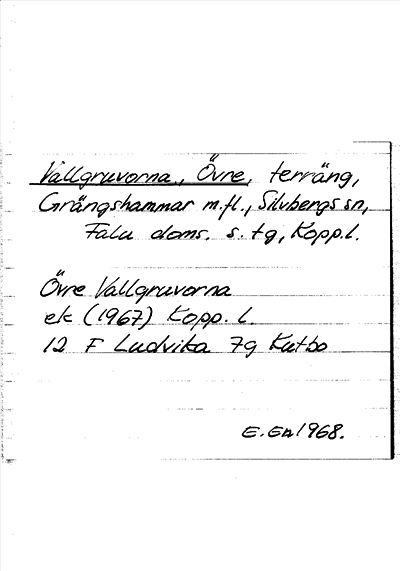 Vallgruvorna, Övre, terräng,
Grängshammar m.fl., Silvbergs sn,
Falu doms. s. tg, Kopp.l.
Övre Vallgruvorna
ek (1967) Kopp. l.
12 F Ludvika 7g Kutbo
E. En 1968.